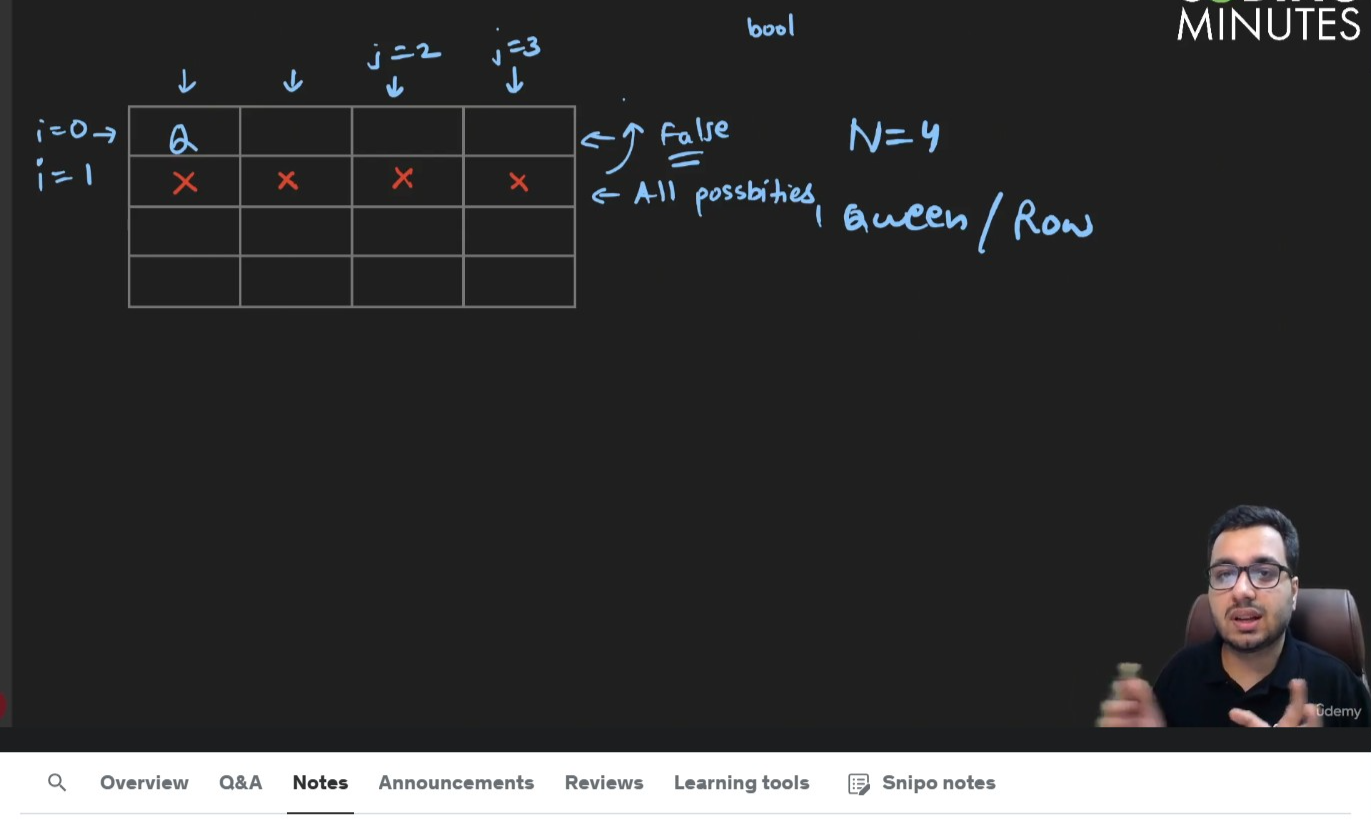 bool
MINUTES
j=2 j=3
i=0→ Q False N=4
i=1 × × × × ← All possbities, Queen / Row
ûdemy
Overview Q&A Notes Announcements Reviews Learning tools Snipo notes